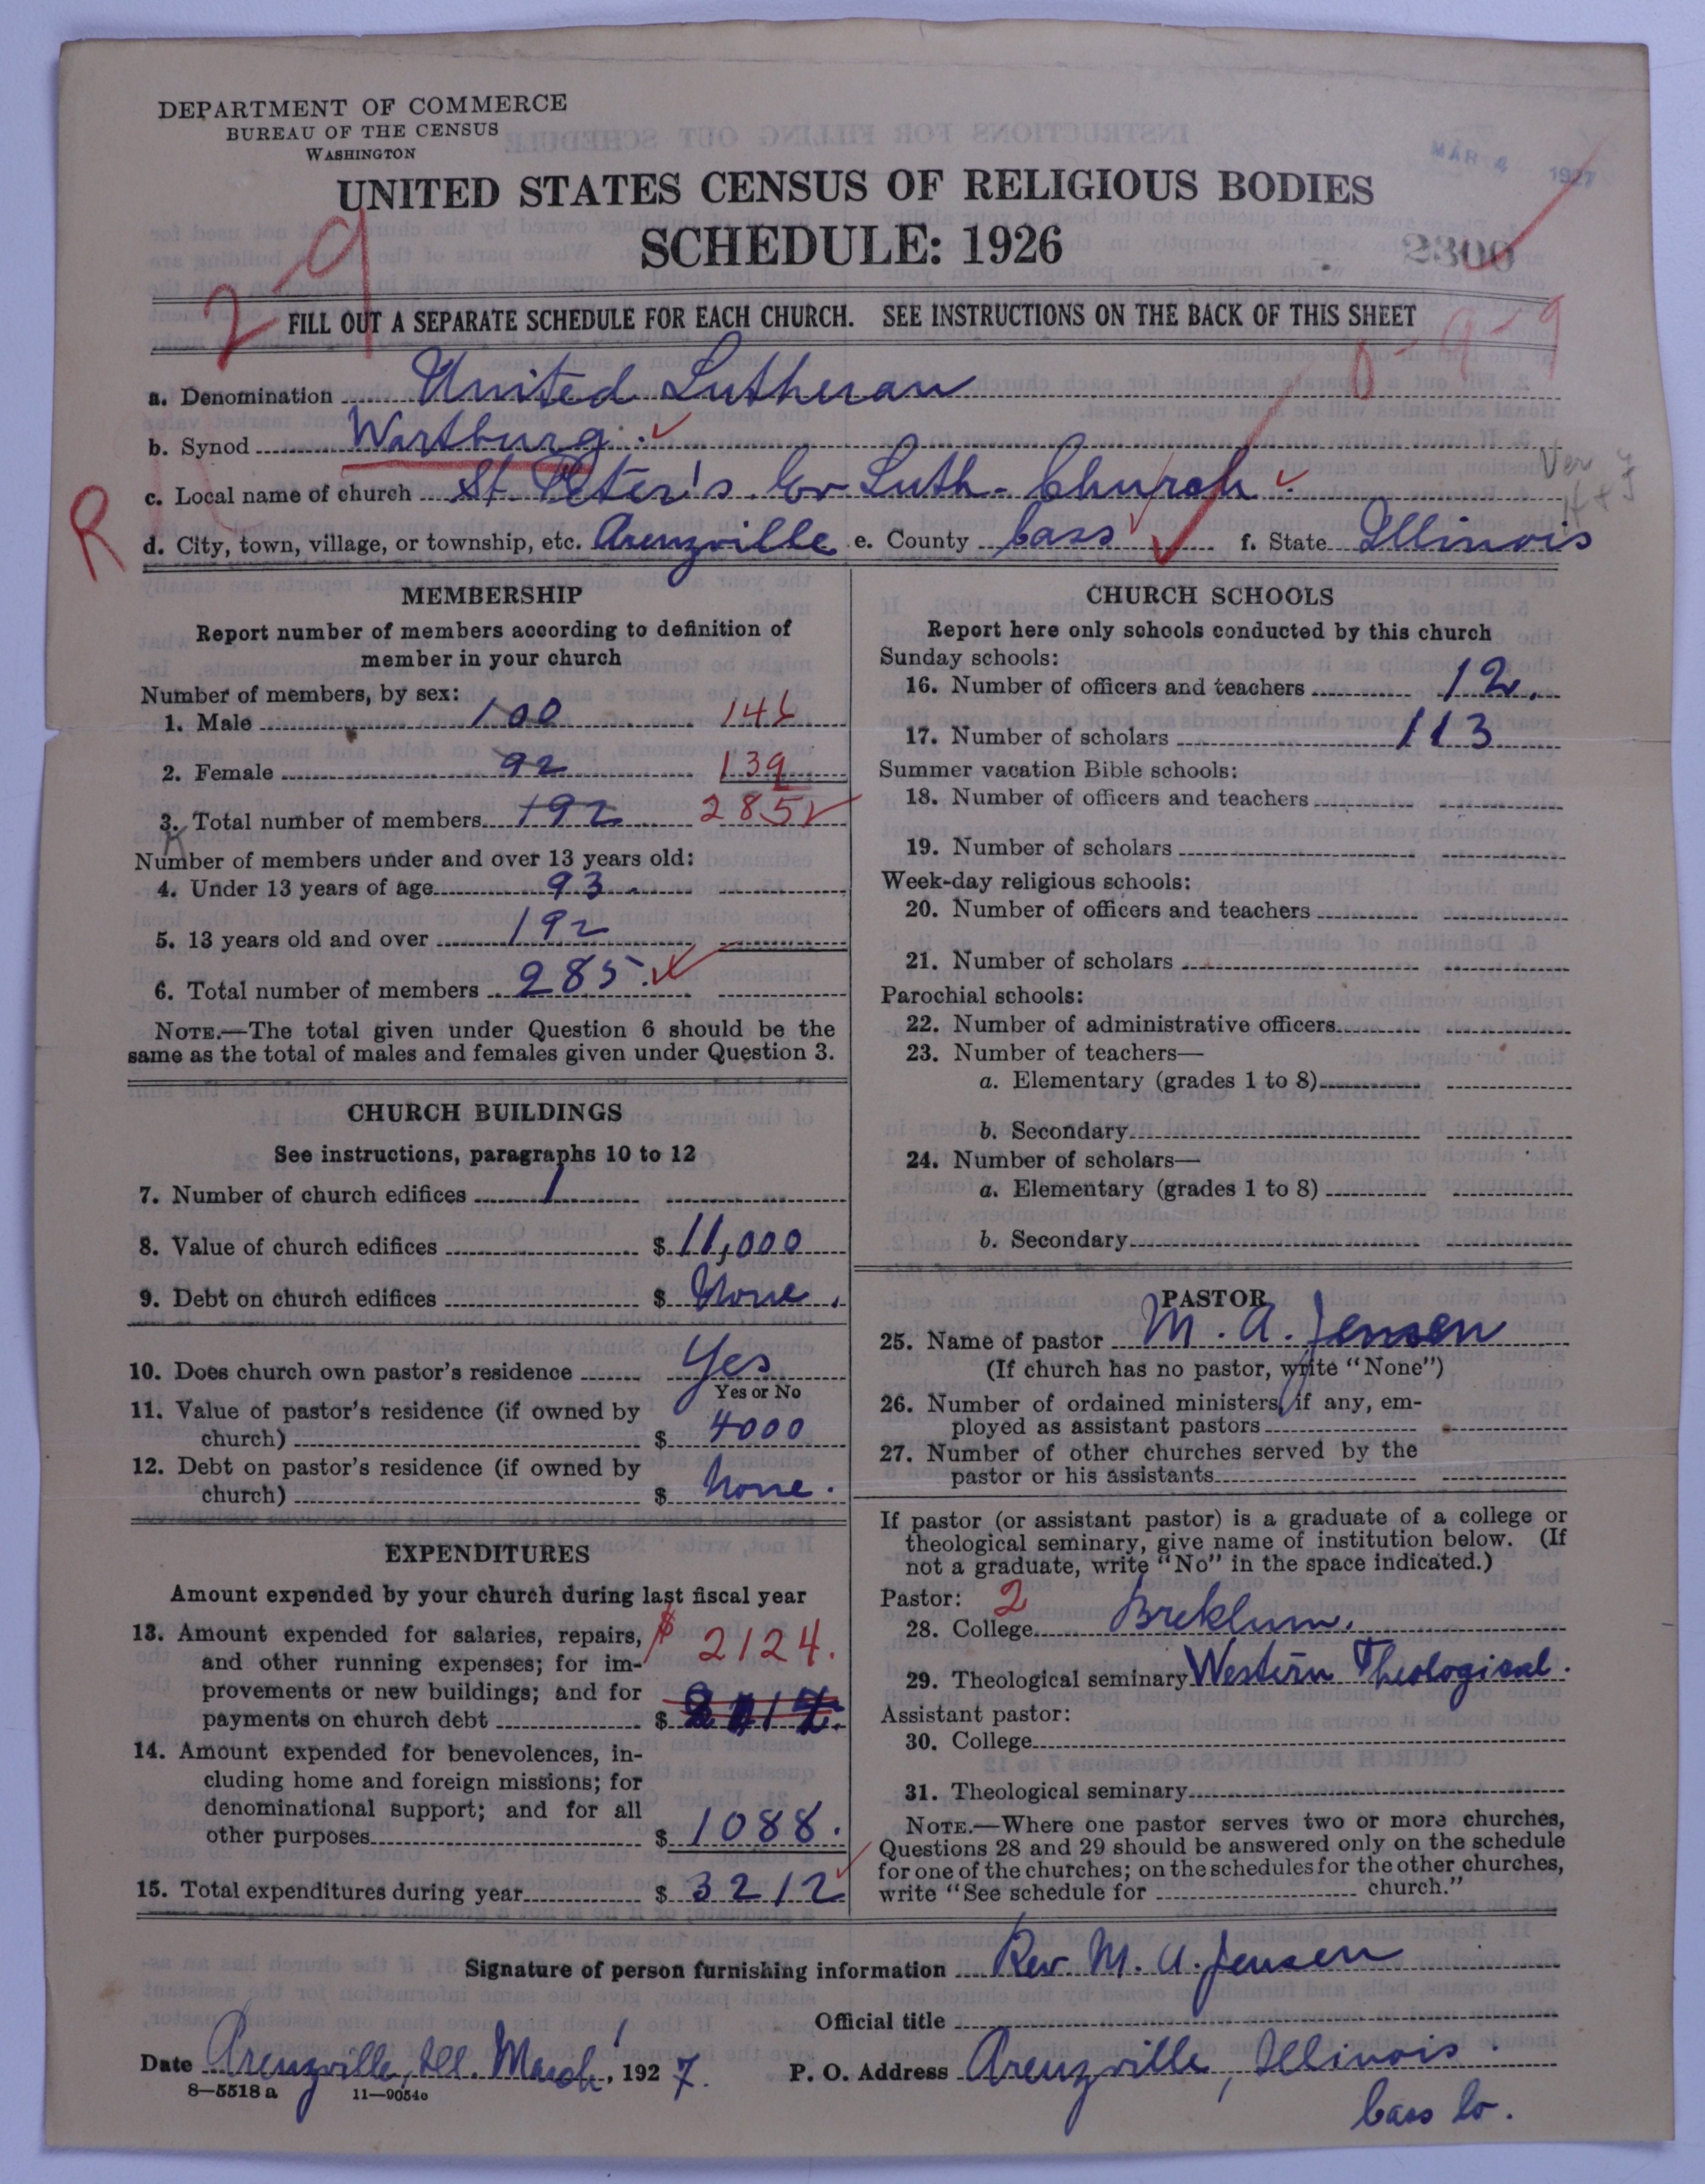 DEPARTMENT OF COMMERCE
BUREAU OF THE CENSUS
WASHINGTON
MAR 4 1927
UNITED STATES CENSUS OF RELIGIOUS BODIES
SCHEDULE: 1926
2300
29
FILL OUT A SEPARATE SCHEDULE FOR EACH CHURCH. SEE INSTRUCTIONS ON THE BACK OF THIS SHEET
a. Denomination United Lutheran
b. Synod Wartburg.
c. Local name of church St. Peter's Ev Luth. Church
R
d. City, town, village, or township, etc. Arenzville e. County Cass f. State Illinois
MEMBERSHIP
Report number of members according to definition of
member in your church
Number of members, by sex:
1. Male 100 146
2. Female 92 139
3. Total number of members 192 285
Number of members under and over 13 years old:
4. Under 13 years of age 93
5. 13 years old and over 192
6. Total number of members 285
NOTE.—The total given under Question 6 should be the
same as the total of males and females given under Question 3.
CHURCH BUILDINGS
See instructions, paragraphs 10 to 12
7. Number of church edifices 1
8. Value of church edifices $ 11,000
9. Debt on church edifices $ None.
10. Does church own pastor's residence Yes
Yes or No
11. Value of pastor's residence (if owned by
church) $ 4000
12. Debt on pastor's residence (if owned by
church) $ None.
EXPENDITURES
Amount expended by your church during last fiscal year
13. Amount expended for salaries, repairs, $ 2124.
and other running expenses; for im-
provements or new buildings; and for
payments on church debt $
14. Amount expended for benevolences, in-
cluding home and foreign missions; for
denominational support; and for all
other purposes $ 1088.
15. Total expenditures during year $ 3212
CHURCH SCHOOLS
Report here only schools conducted by this church
Sunday schools:
16. Number of officers and teachers 12.
17. Number of scholars 113
Summer vacation Bible schools:
18. Number of officers and teachers
19. Number of scholars
Week-day religious schools:
20. Number of officers and teachers
21. Number of scholars
Parochial schools:
22. Number of administrative officers
23. Number of teachers—
a. Elementary (grades 1 to 8)
b. Secondary
24. Number of scholars—
a. Elementary (grades 1 to 8)
b. Secondary
PASTOR
25. Name of pastor M. A. Jensen
(If church has no pastor, write "None")
26. Number of ordained ministers, if any, em-
ployed as assistant pastors
27. Number of other churches served by the
pastor or his assistants
If pastor (or assistant pastor) is a graduate of a college or
theological seminary, give name of institution below. (If
not a graduate, write "No" in the space indicated.)
Pastor: 2
28. College Breklum.
29. Theological seminary Western Theological.
Assistant pastor:
30. College
31. Theological seminary
NOTE.—Where one pastor serves two or more churches,
Questions 28 and 29 should be answered only on the schedule
for one of the churches; on the schedules for the other churches,
write "See schedule for church."
Signature of person furnishing information Rev M. A. Jensen
Official title
Date Arenzville, Ill. March 1, 1927.
P. O. Address Arenzville, Illinois
Cass Co.
8—5518 a 11—9054o